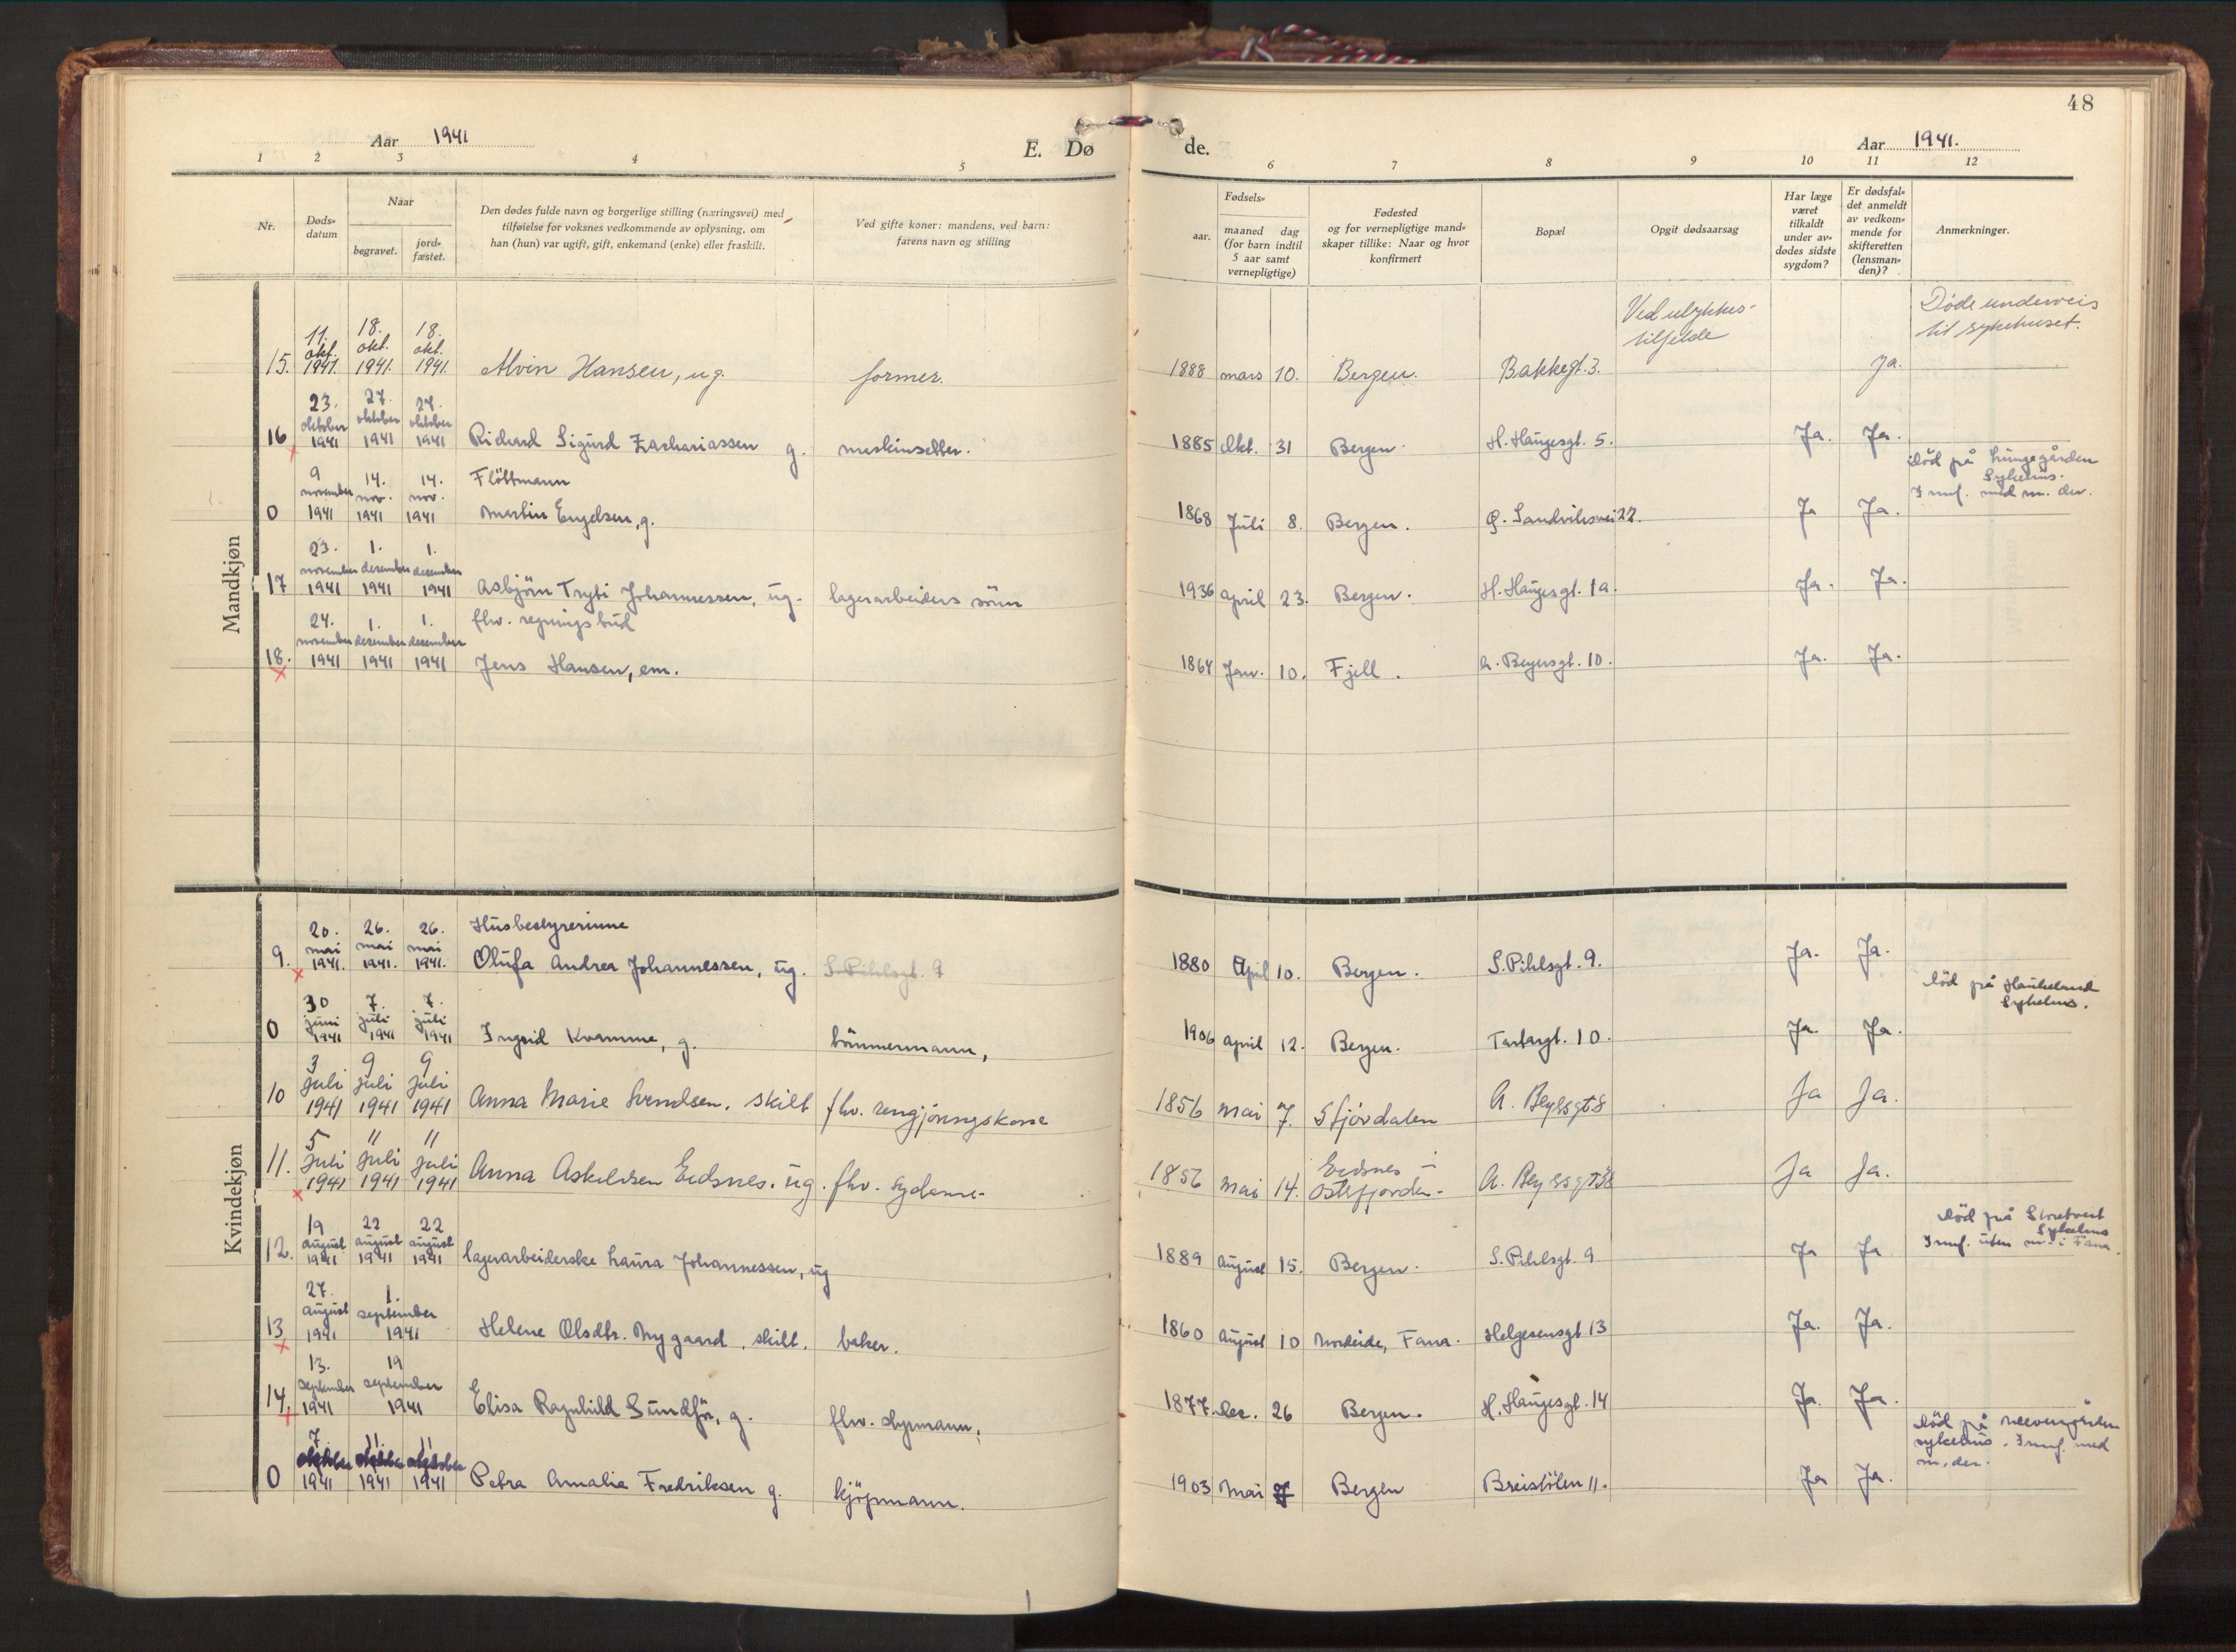 48
Aar 1941
E. Dø
de.
Aar 1941.
1 2 3 4 5 6 7 8 9 10 11 12
Nr.
Døds-
datum
Naar
begravet.
jord-
fæstet.
Den dødes fulde navn og borgerlige stilling (næringsvei) med
tilføielse for voksnes vedkommende av oplysning, om
han (hun) var ugift, gift, enkemand (enke) eller fraskilt.
Ved gifte koner: mandens, ved barn:
farens navn og stilling
Fødsels-
aar.
maaned dag
(for barn indtil
5 aar samt
vernepligtige)
Fødested
og for vernepligtige mand-
skaper tillike: Naar og hvor
konfirmert
Bopæl
Opgit dødsaarsag
Har læge
været
tilkaldt
under av-
dødes sidste
sygdom?
Er dødsfal-
det anmeldt
av vedkom-
mende for
skifteretten
(lensman-
den)?
Anmerkninger.
Mandkjøn
Ved ulykkes-
tilfelde
Døde underveis
til sykehuset.
11. 18. 18.
okt. okt. okt.
15. 1941. 1941. 1941. Alvin Hansen, ug. former. 1888 mars 10. Bergen. Bakkegt. 3. Ja.
23. 27. 27.
oktober oktober oktober
16 1941 1941 1941 Richard Sigurd Zachariassen g. maskinsetter. 1885 Okt. 31 Bergen. H. Haugesgt. 5. Ja. Ja.
9 14. 14. Flöttmann död på Lungegården
november nov. nov. Sykehus.
0 1941 1941 1941 Martin Engelsen, g. 1868 Juli 8. Bergen. Ø. Sandviksvei 22. Ja Ja. Innf. med nr. der.
23. 1. 1.
november desember desember
17 1941 1941 1941 Asbjörn Trygi Johannessen, ug. lagerarbeiders sönn 1936 April 23. Bergen. H. Haugesgt. 1a. Ja. Ja.
24. 1. 1. fhv. regningsbud
november desember desember
18. 1941 1941 1941 Jens Hansen, em. 1864 Jan. 10. Fjell. A. Beyersgt. 10. Ja. Ja.
Kvindekjøn
20. 26. 26. Husbestyrerinne
mai mai mai
9. 1941. 1941. 1941. Olufa Andrea Johannessen, ug. S. Pihlsgt. 9 1880 April 10. Bergen. S. Pihlsgt. 9. Ja. Ja.
30 7. 7. död på Haukeland
juni juli juli Sykehus.
0 1941 1941 1941 Ingrid Kvamme, g. tömmermann, 1906 April 12. Bergen. Tartargt. 10. Ja. Ja.
3 9 9
juli juli juli
10 1941 1941 1941 Anna Marie Svendsen. skilt fhv. rengjøringskone 1856 mai 7. Stjørdalen A. Beyersgt. 8 Ja Ja.
5 11 11
juli juli juli
11. 1941 1941 1941 Anna Askeldsen Eidsnes. ug. fhv. sydame 1856 mai 14. Eidsnes i
Osterfjorden. Ja Ja.
19 22 22 död på Storetveit
august august august Sykehus
12. 1941 1941 1941 lagerarbeiderske Laura Johannessen, ug 1889 August 15. Bergen. S. Pihlsgt. 9 Ja Ja Innf. uten nr. i Fana.
27. 1.
august september
13 1941 1941 Helene Olsdtr. Nygaard. skilt. baker. 1860 August 10 Nordeide, Fana. Helgesensgt 13 Ja. Ja.
13. 19
september september
14. 1941 1941 Elisa Ragnhild Sundför, g. fhv. styrmann. 1877 Des. 26 Bergen. H. Haugesgt. 14 Ja. Ja.
7. 11. 11 död på Neevengården
oktober oktober oktober sykehus. Innf. med
0 1941 1941 1941 Petra Amalia Fredriksen g. kjöpmann. 1903 Mai 7 Bergen Breistölen 11. Ja Ja. nr. der.